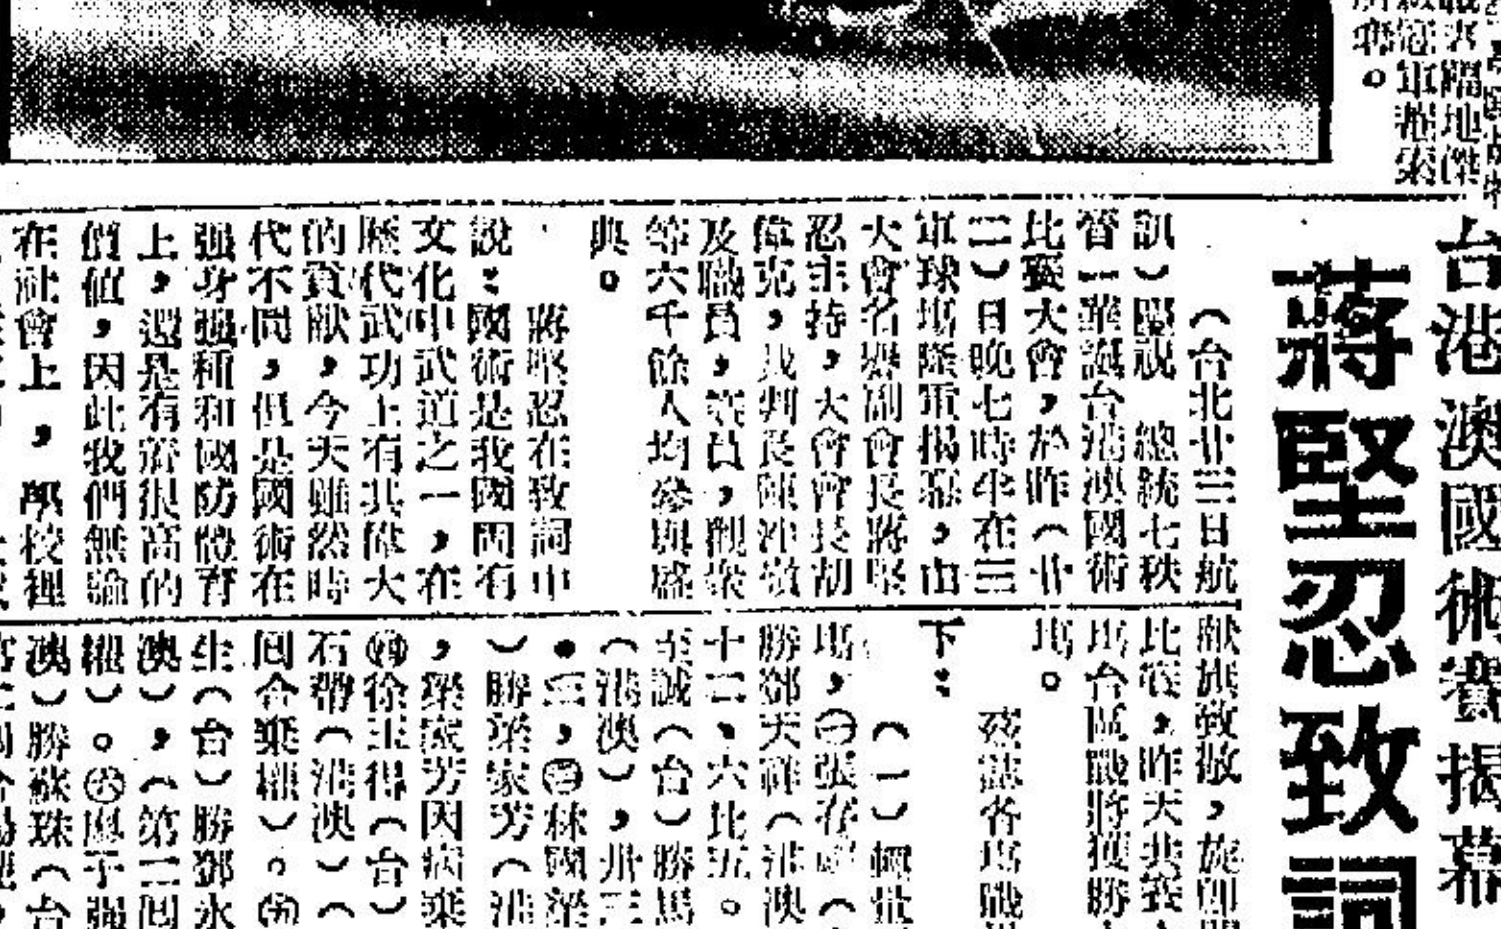 台港澳國術賽揭幕
蔣堅忍致詞
（台北廿三日航
訊）慶祝　總統七秩
晉一華誕台港澳國術
比賽大會，於昨（廿
二）日晚七時半在三
軍球場隆重揭幕，由
大會名譽副會長蔣堅
忍主持，大會會長胡
偉克，裁判長陳泮嶺
及職員，會員，觀衆
等六千餘人均參與盛
典。
蔣堅忍在致詞中
說：國術是我國固有
文化中武道之一，在
歷代武功上有其偉大
的貢獻，今天雖然時
代不同，但是國術在
强身强種和國防體育
上，還是有着很高的
價值，因此我們無論
在社會上，學校裡
献旗致敬，旋即
比賽，昨天共賽
塲台區戰將獲勝
塲。
茲誌各塲戰
下：
（一）輕
塲，㊀張存
勝鄧天祥（港澳
十二、六比五。
至誠（台）勝馬
（港澳），卅三
●三，㊂林國
）勝梁家芳（港
，梁家芳因病棄
㊃徐玉得（台）
石帶（港澳）（
囘合棄權）。㊄
生（台）勝鄧永
澳），（第二囘
權）。㊅廖子强
澳）勝蘇珠（台